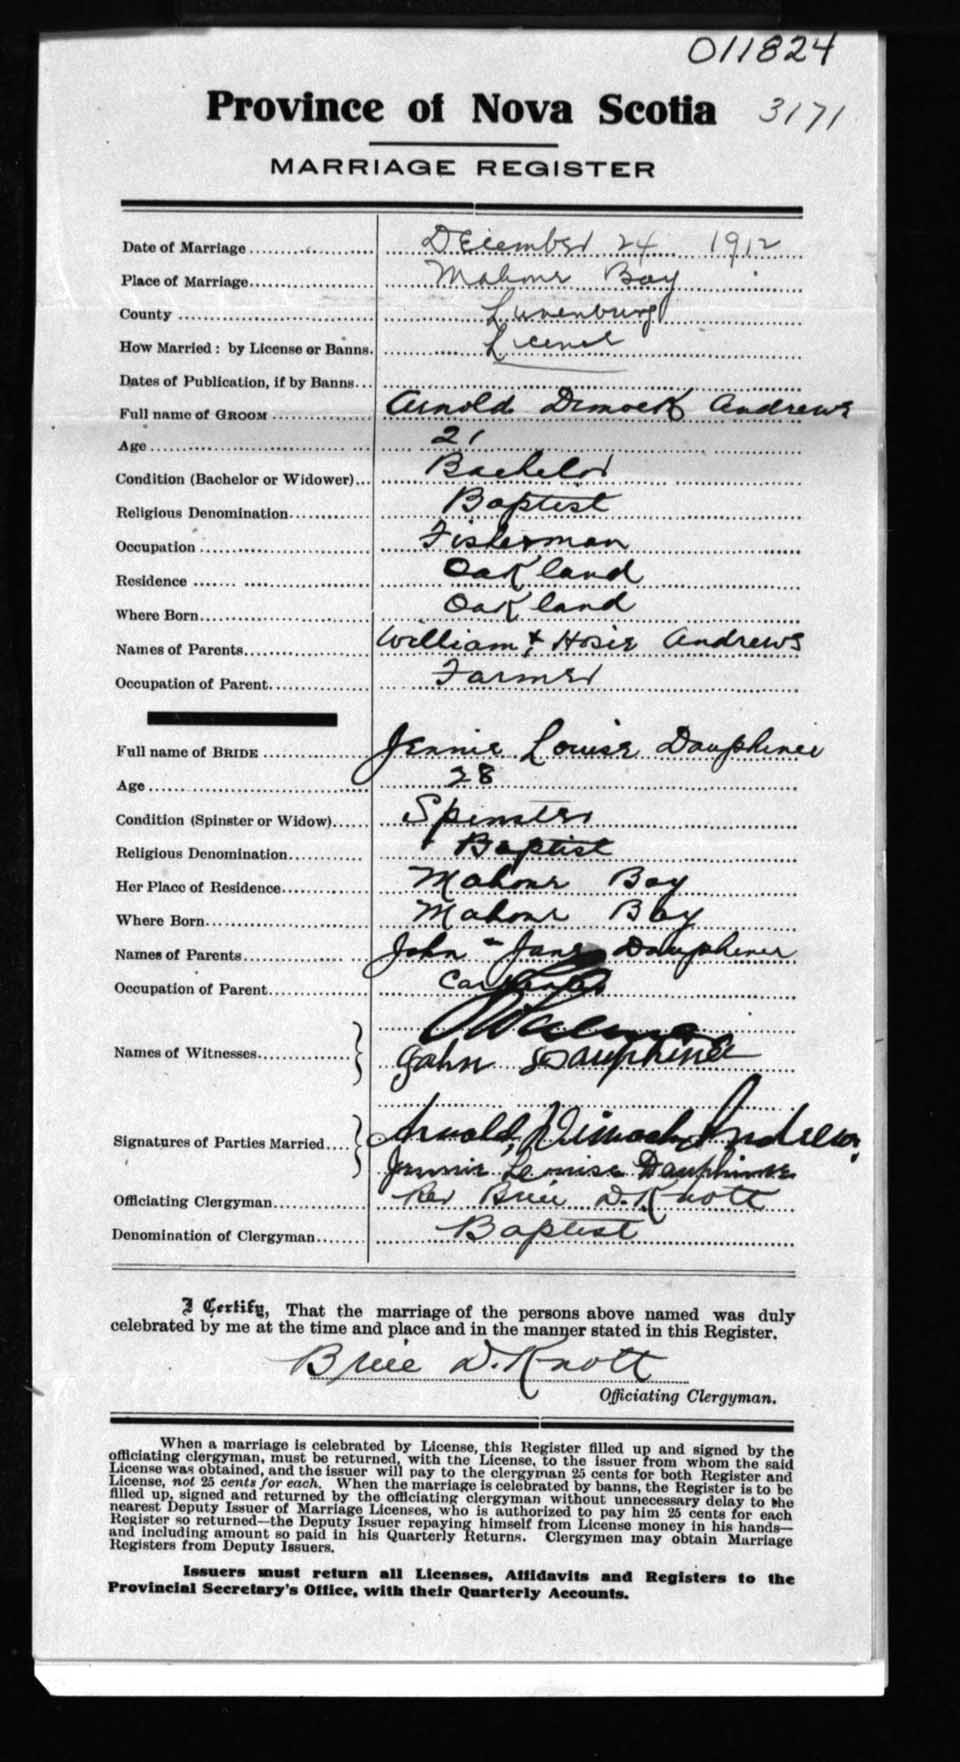 011824
Province of Nova Scotia 3171
MARRIAGE REGISTER
Date of Marriage December 24 1912
Place of Marriage Mahone Bay
County Lunenburg
How Married: by License or Banns. License
Dates of Publication, if by Banns
Full name of GROOM Arnold Dimock Andrews
Age 21
Condition (Bachelor or Widower) Bachelor
Religious Denomination Baptist
Occupation Fisherman
Residence Oakland
Where Born Oakland
Names of Parents William & Hosie Andrews
Occupation of Parent Farmer
Full name of BRIDE Jennie Louise Dauphinee
Age 28
Condition (Spinster or Widow) Spinster
Religious Denomination Baptist
Her Place of Residence Mahone Bay
Where Born Mahone Bay
Names of Parents John " Jane Dauphinee
Occupation of Parent Carpenter
Names of Witnesses
John Dauphinee
Signatures of Parties Married Arnold Dimock Andrews
Jennie Louise Dauphinee
Officiating Clergyman Rev D. Knott
Denomination of Clergyman Baptist
I Certify, That the marriage of the persons above named was duly
celebrated by me at the time and place and in the manner stated in this Register.
D. Knott
Officiating Clergyman.
When a marriage is celebrated by License, this Register filled up and signed by the
officiating clergyman, must be returned, with the License, to the issuer from whom the said
License was obtained, and the issuer will pay to the clergyman 25 cents for both Register and
License, not 25 cents for each. When the marriage is celebrated by banns, the Register is to be
filled up, signed and returned by the officiating clergyman without unnecessary delay to the
nearest Deputy Issuer of Marriage Licenses, who is authorized to pay him 25 cents for each
Register so returned—the Deputy Issuer repaying himself from License money in his hands—
and including amount so paid in his Quarterly Returns. Clergymen may obtain Marriage
Registers from Deputy Issuers.
Issuers must return all Licenses, Affidavits and Registers to the
Provincial Secretary's Office, with their Quarterly Accounts.